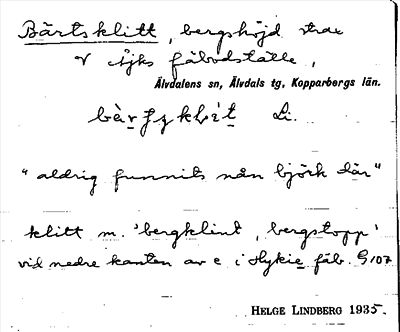 Bärtsklitt, bergshöjd strax
v Ajks fäbodställe,
Älvdalens sn, Älvdals tg, Kopparbergs län.
Li.
"aldrig funnits nån björk där"
klitt m. 'bergklint, bergstopp'
vid nedre kanten av e i Hykie fäb. G 107
HELGE LINDBERG 1935.